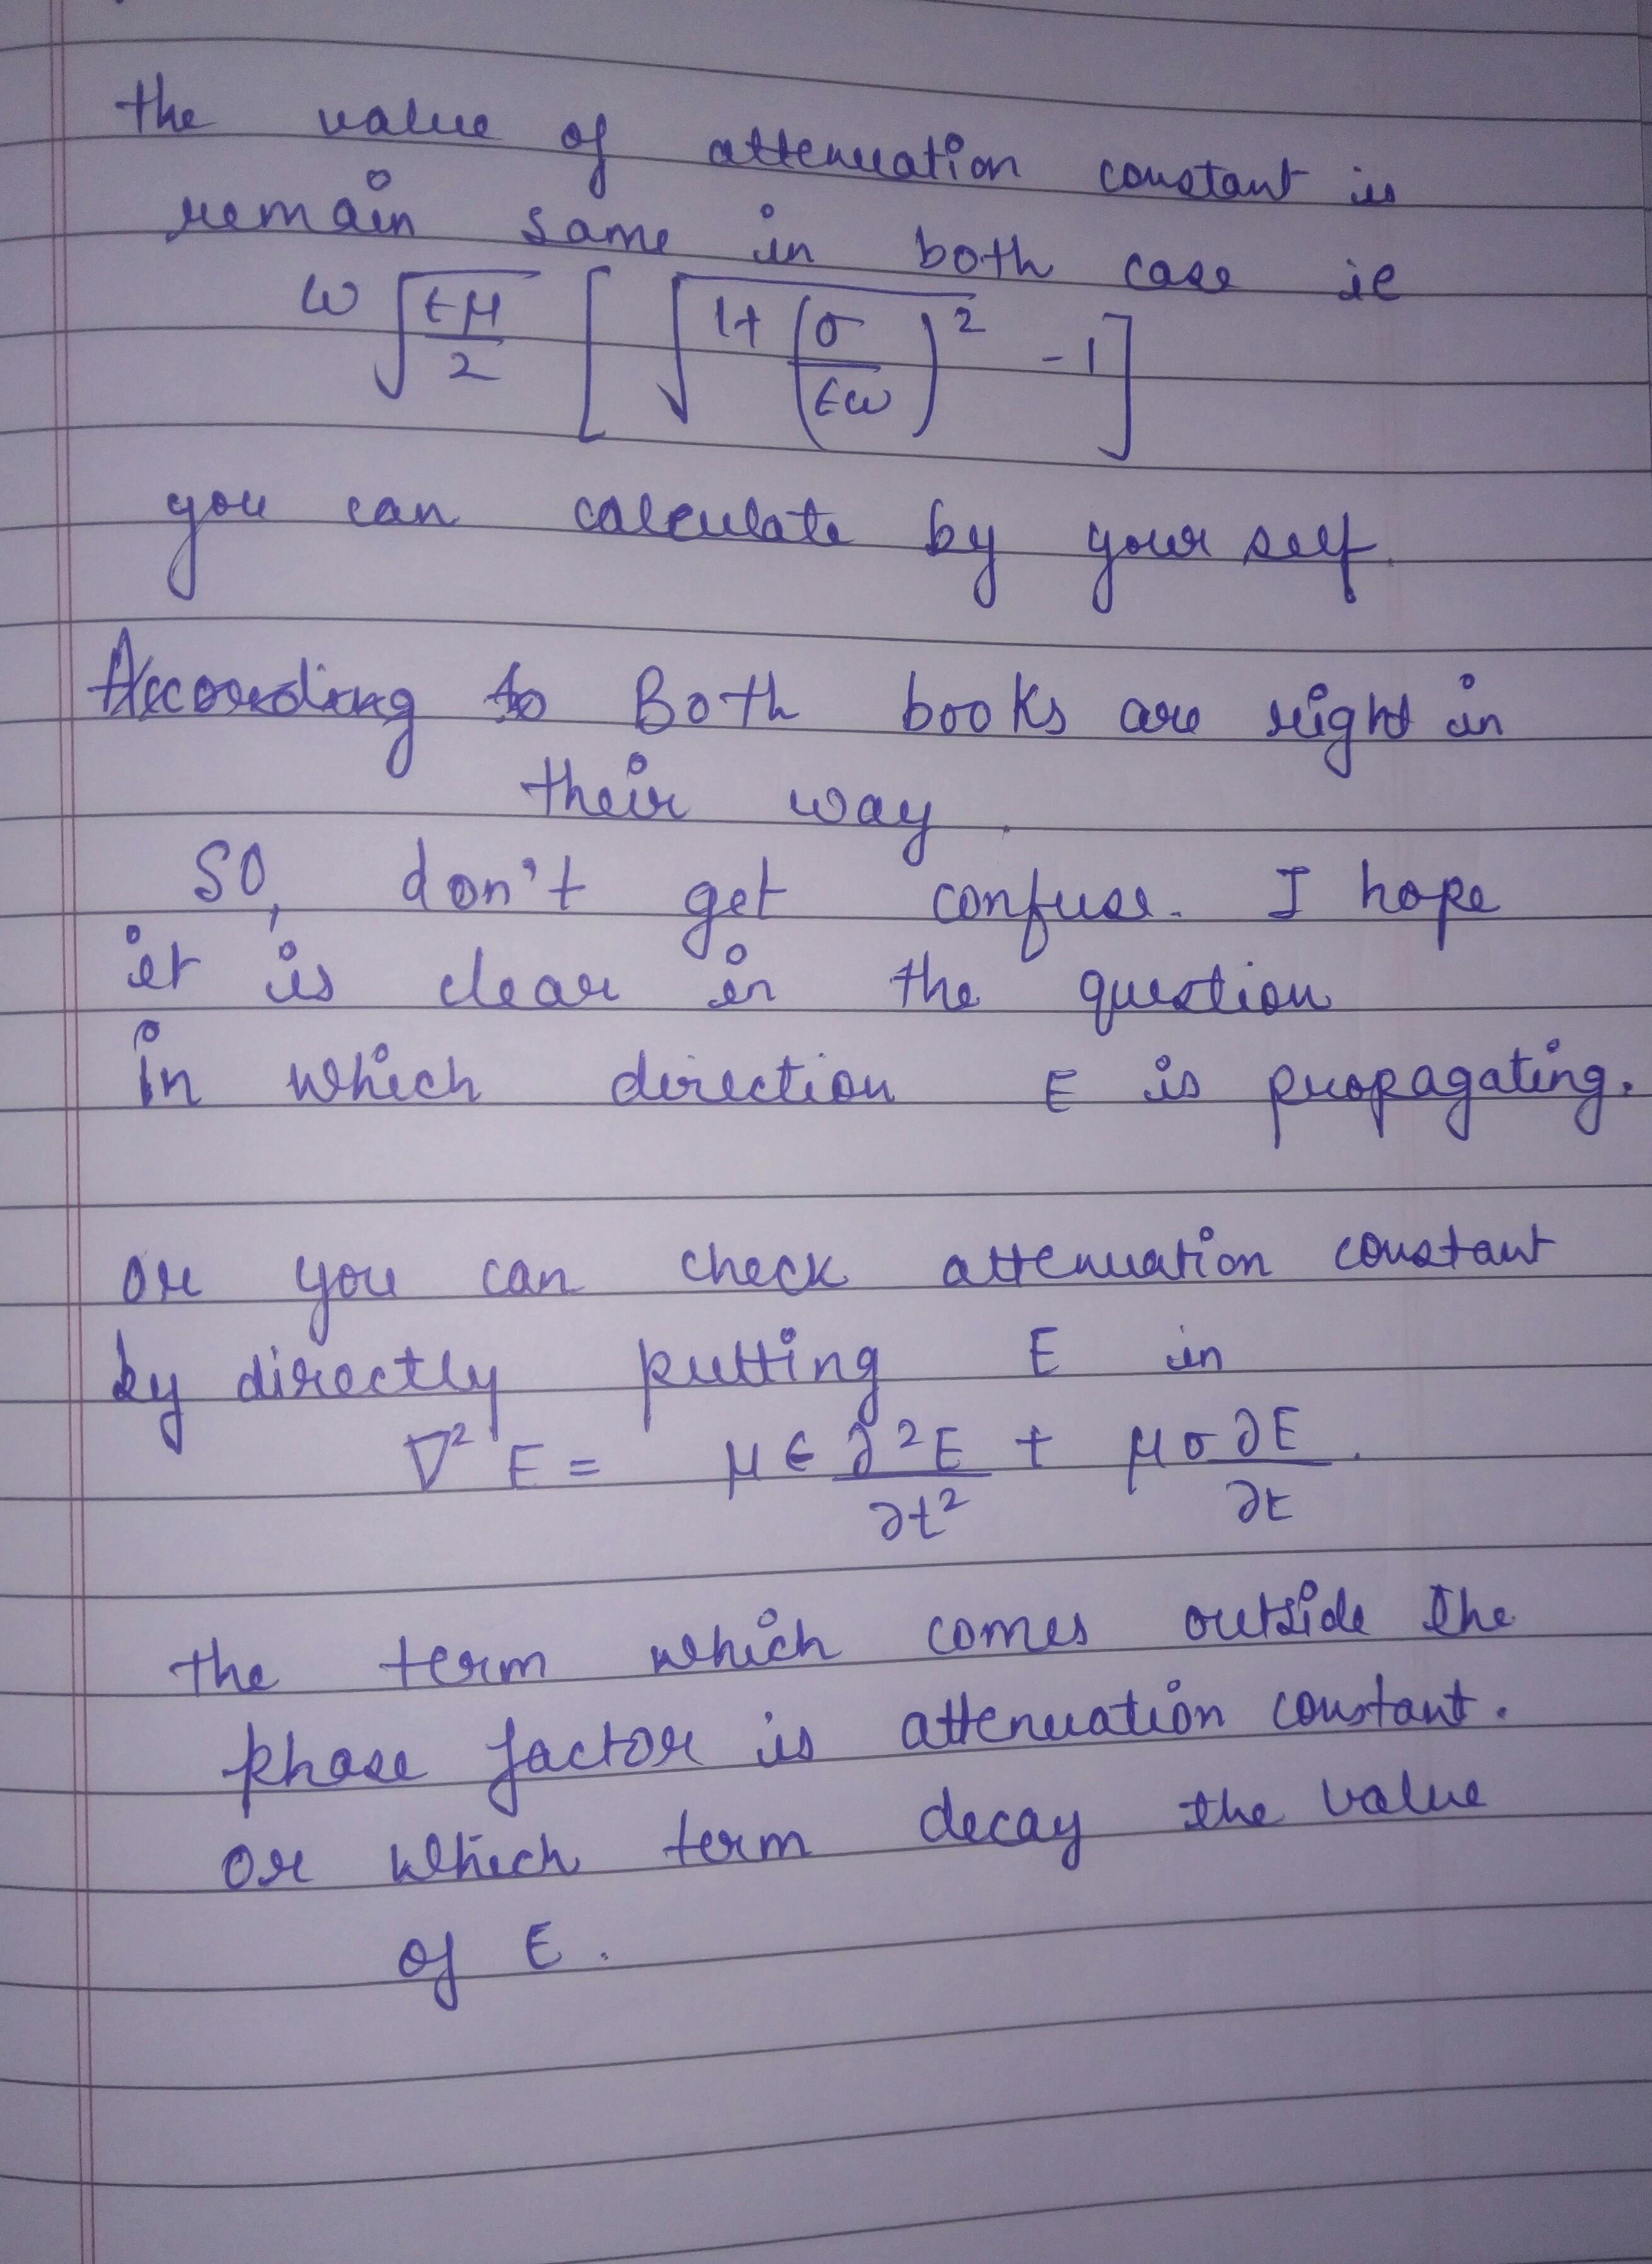 the value of attenuation constant is
remain same in both case ie
ω √(εμ/2) [√(1+(σ/εω)²) -1]
you can calculate by your self.
According to Both books are right in
their way.
SO, don't get confuse. I hope
it is clear in the question
in which direction E is propagating.
or you can check attenuation constant
by directly putting E in
∇²E = μϵ ∂²E/∂t² + μσ ∂E/∂t.
the term which comes outside the
phase factor is attenuation constant.
or which term decay the value
of E.